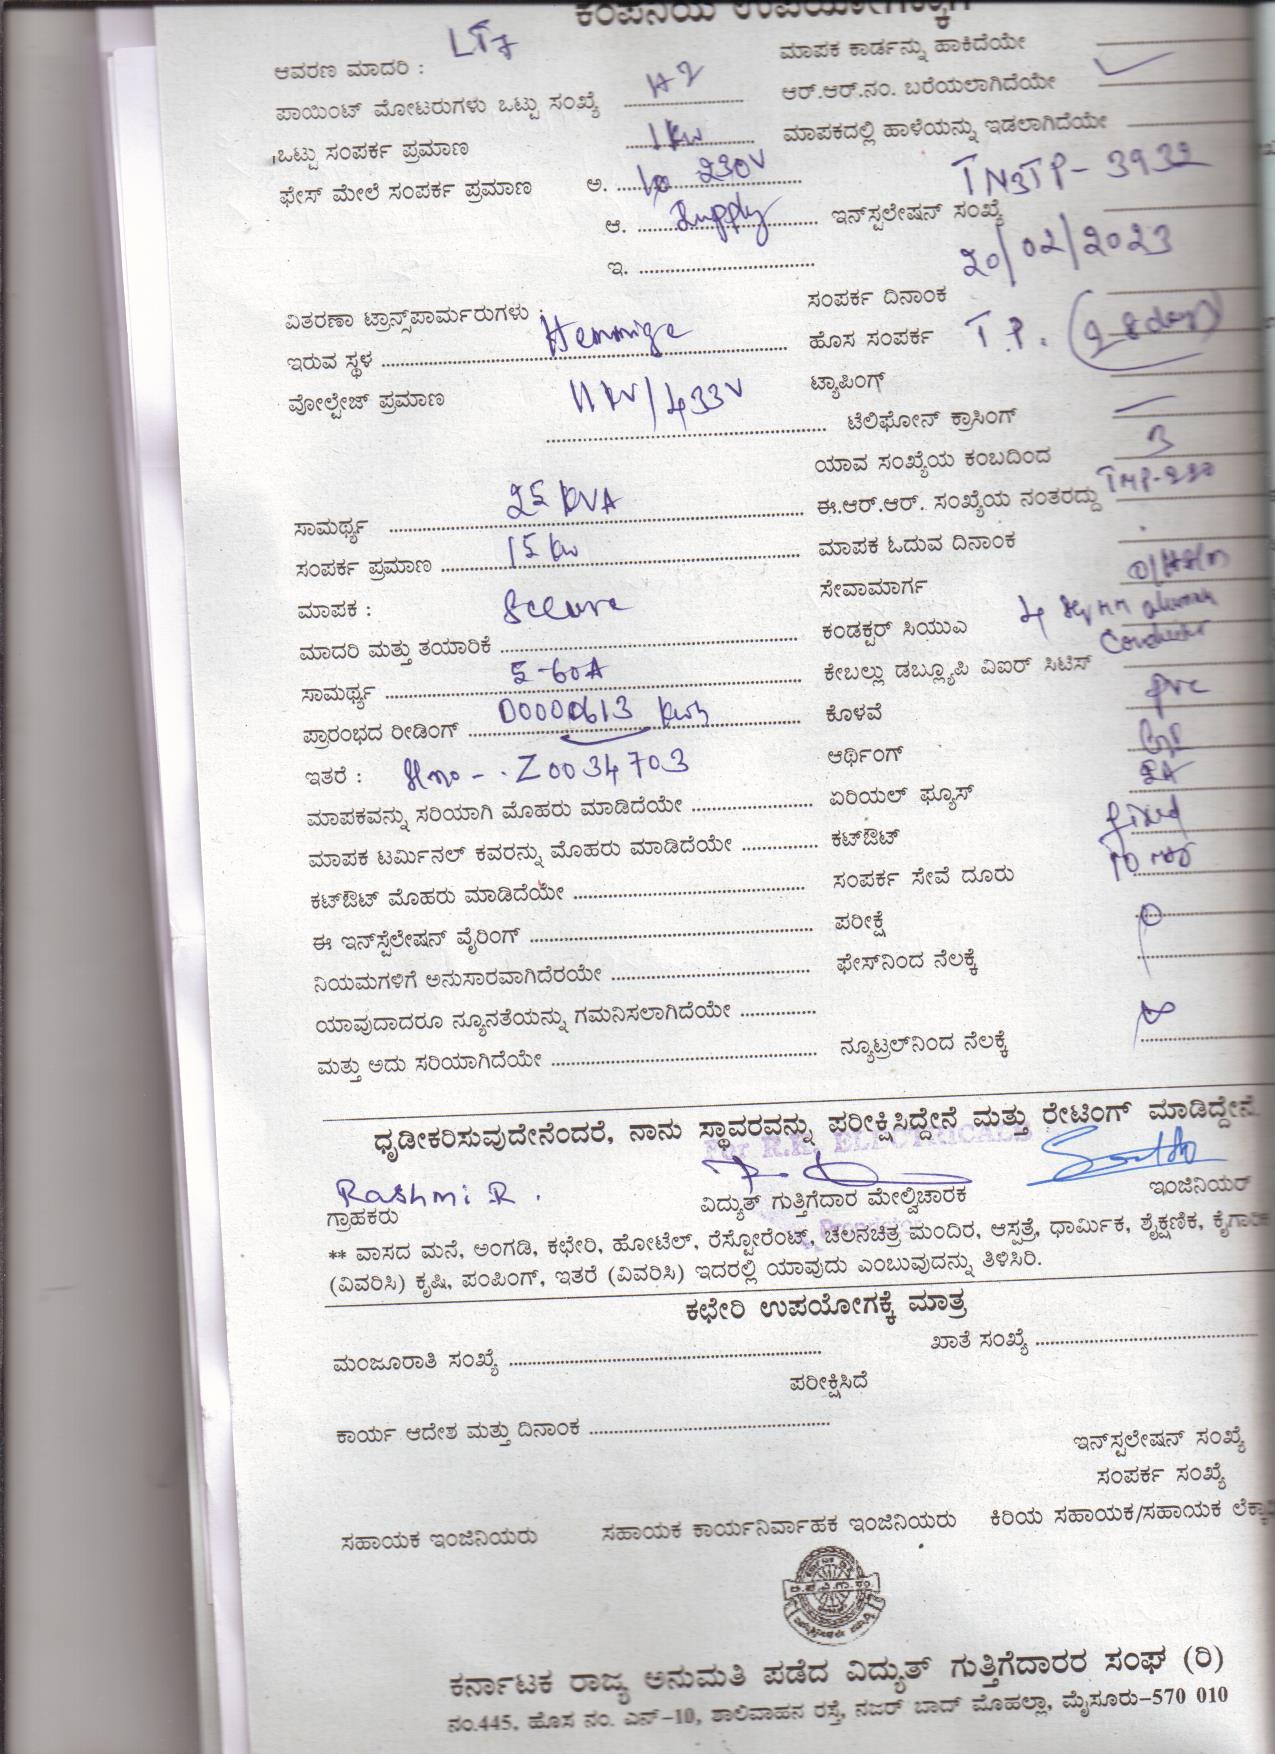 ಕಂಪನಿಯ ಉಪಯೋಗಕ್ಕಾಗಿ
ಆವರಣ ಮಾದರಿ : LT7 ಮಾಪಕ ಕಾರ್ಡನ್ನು ಹಾಕಿದೆಯೇ
ಪಾಯಿಂಟ್ ಮೋಟರುಗಳು ಒಟ್ಟು ಸಂಖ್ಯೆ ಆರ್.ಆರ್.ನಂ. ಬರೆಯಲಾಗಿದೆಯೇ
ಒಟ್ಟು ಸಂಪರ್ಕ ಪ್ರಮಾಣ 1 Kw ಮಾಪಕದಲ್ಲಿ ಹಾಳೆಯನ್ನು ಇಡಲಾಗಿದೆಯೇ
ಫೇಸ್ ಮೇಲೆ ಸಂಪರ್ಕ ಪ್ರಮಾಣ ಅ. 1ø 230V
ಆ. Supply ಇನ್‌ಸ್ಟಲೇಷನ್ ಸಂಖ್ಯೆ TN3TP-3932
ಇ.
ಸಂಪರ್ಕ ದಿನಾಂಕ 20/02/2023
ವಿತರಣಾ ಟ್ರಾನ್ಸ್‌ಪಾರ್ಮರುಗಳು :
ಇರುವ ಸ್ಥಳ Hemmige ಹೊಸ ಸಂಪರ್ಕ T.P. (28 days)
ವೋಲ್ಟೇಜ್ ಪ್ರಮಾಣ 11KV/433V ಟ್ಯಾಪಿಂಗ್
ಟೆಲಿಫೋನ್ ಕ್ರಾಸಿಂಗ್ —
ಯಾವ ಸಂಖ್ಯೆಯ ಕಂಬದಿಂದ 3
ಸಾಮರ್ಥ್ಯ 25 KVA ಈ.ಆರ್.ಆರ್. ಸಂಖ್ಯೆಯ ನಂತರದ್ದು
ಸಂಪರ್ಕ ಪ್ರಮಾಣ 15 Kw ಮಾಪಕ ಓದುವ ದಿನಾಂಕ
ಮಾಪಕ : Secure ಸೇವಾಮಾರ್ಗ
ಮಾದರಿ ಮತ್ತು ತಯಾರಿಕೆ ಕಂಡಕ್ಟರ್ ಸಿಯುಎ 4 Sq mm
ಸಾಮರ್ಥ್ಯ 5-60A ಕೇಬಲ್ಲು ಡಬ್ಲ್ಯೂಪಿ ವಿಐರ್ ಸಿಟಿಸ್ Conductor
ಪ್ರಾರಂಭದ ರೀಡಿಂಗ್ 00000613 Kwh ಕೊಳವೆ pvc
ಇತರೆ : Slno - Z0034703 ಆರ್ಥಿಂಗ್
ಮಾಪಕವನ್ನು ಸರಿಯಾಗಿ ಮೊಹರು ಮಾಡಿದೆಯೇ ಏರಿಯಲ್ ಫ್ಯೂಸ್ 5A
ಮಾಪಕ ಟರ್ಮಿನಲ್ ಕವರನ್ನು ಮೊಹರು ಮಾಡಿದೆಯೇ ಕಟ್‌ಔಟ್ fixed
ಕಟ್‌ಔಟ್ ಮೊಹರು ಮಾಡಿದೆಯೇ ಸಂಪರ್ಕ ಸೇವೆ ದೂರು
ಈ ಇನ್‌ಸ್ಟೆಲೇಷನ್ ವೈರಿಂಗ್ ಪರೀಕ್ಷೆ
ನಿಯಮಗಳಿಗೆ ಅನುಸಾರವಾಗಿದೆರಯೇ ಫೇಸ್‌ನಿಂದ ನೆಲಕ್ಕೆ
ಯಾವುದಾದರೂ ನ್ಯೂನತೆಯನ್ನು ಗಮನಿಸಲಾಗಿದೆಯೇ
ಮತ್ತು ಅದು ಸರಿಯಾಗಿದೆಯೇ ನ್ಯೂಟ್ರಲ್‌ನಿಂದ ನೆಲಕ್ಕೆ
ಧೃಡೀಕರಿಸುವುದೇನೆಂದರೆ, ನಾನು ಸ್ಥಾವರವನ್ನು ಪರೀಕ್ಷಿಸಿದ್ದೇನೆ ಮತ್ತು ರೇಟಿಂಗ್ ಮಾಡಿದ್ದೇನೆ.
For R.R. ELECTRICALS
Rashmi R.
ಗ್ರಾಹಕರು ವಿದ್ಯುತ್ ಗುತ್ತಿಗೆದಾರ ಮೇಲ್ವಿಚಾರಕ ಇಂಜಿನಿಯರ್
** ವಾಸದ ಮನೆ, ಅಂಗಡಿ, ಕಛೇರಿ, ಹೋಟೆಲ್, ರೆಸ್ಟೋರೆಂಟ್, ಚಲನಚಿತ್ರ ಮಂದಿರ, ಆಸ್ಪತ್ರೆ, ಧಾರ್ಮಿಕ, ಶೈಕ್ಷಣಿಕ, ಕೈಗಾರಿಕ
(ವಿವರಿಸಿ) ಕೃಷಿ, ಪಂಪಿಂಗ್, ಇತರೆ (ವಿವರಿಸಿ) ಇದರಲ್ಲಿ ಯಾವುದು ಎಂಬುವುದನ್ನು ತಿಳಿಸಿರಿ.
ಕಛೇರಿ ಉಪಯೋಗಕ್ಕೆ ಮಾತ್ರ
ಮಂಜೂರಾತಿ ಸಂಖ್ಯೆ ಖಾತೆ ಸಂಖ್ಯೆ
ಪರೀಕ್ಷಿಸಿದೆ
ಕಾರ್ಯ ಆದೇಶ ಮತ್ತು ದಿನಾಂಕ
ಇನ್‌ಸ್ಟಲೇಷನ್ ಸಂಖ್ಯೆ
ಸಂಪರ್ಕ ಸಂಖ್ಯೆ
ಸಹಾಯಕ ಇಂಜಿನಿಯರು ಸಹಾಯಕ ಕಾರ್ಯನಿರ್ವಾಹಕ ಇಂಜಿನಿಯರು ಕಿರಿಯ ಸಹಾಯಕ/ಸಹಾಯಕ
ಕರ್ನಾಟಕ ರಾಜ್ಯ ಅನುಮತಿ ಪಡೆದ ವಿದ್ಯುತ್ ಗುತ್ತಿಗೆದಾರರ ಸಂಘ (ರಿ)
ನಂ.445, ಹೊಸ ನಂ. ಎನ್-10, ಶಾಲಿವಾಹನ ರಸ್ತೆ, ನಜರ್ ಬಾದ್ ಮೊಹಲ್ಲಾ, ಮೈಸೂರು-570 010